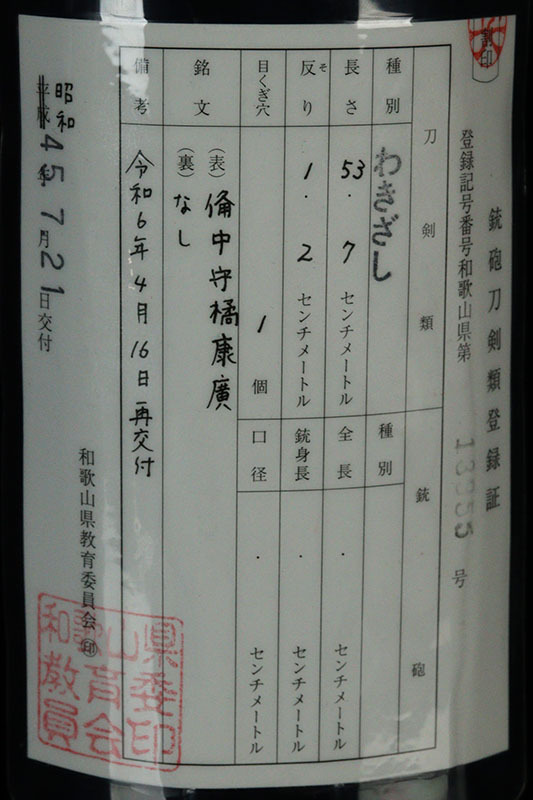 割印
銃砲刀剣類登録証
登録記号番号和歌山県第 13355 号
刀剣類
銃砲
種別 わきざし
種別
長さ 53.7センチメートル
全長 ・ センチメートル
反り 1.2センチメートル
そ
銃身長 ・ センチメートル
目くぎ穴 1個
口径 ・ センチメートル
銘文
(表) 備中守橘康廣
(裏) なし
備考 令和6年4月16日再交付
昭和
平成45年7月21日交付
和歌山県教育委員会 ㊞
和歌山県
教育委
員会印